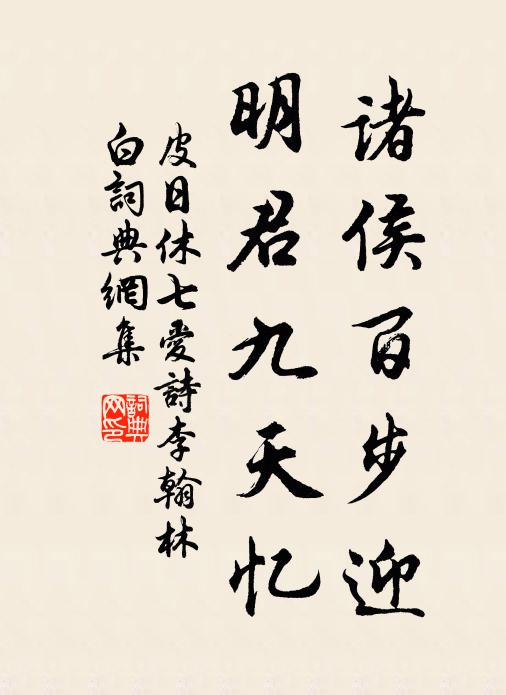 诸侯百步迎
明君九天忆
皮日休七爱詩李翰林
白詞典網集
詞典网印